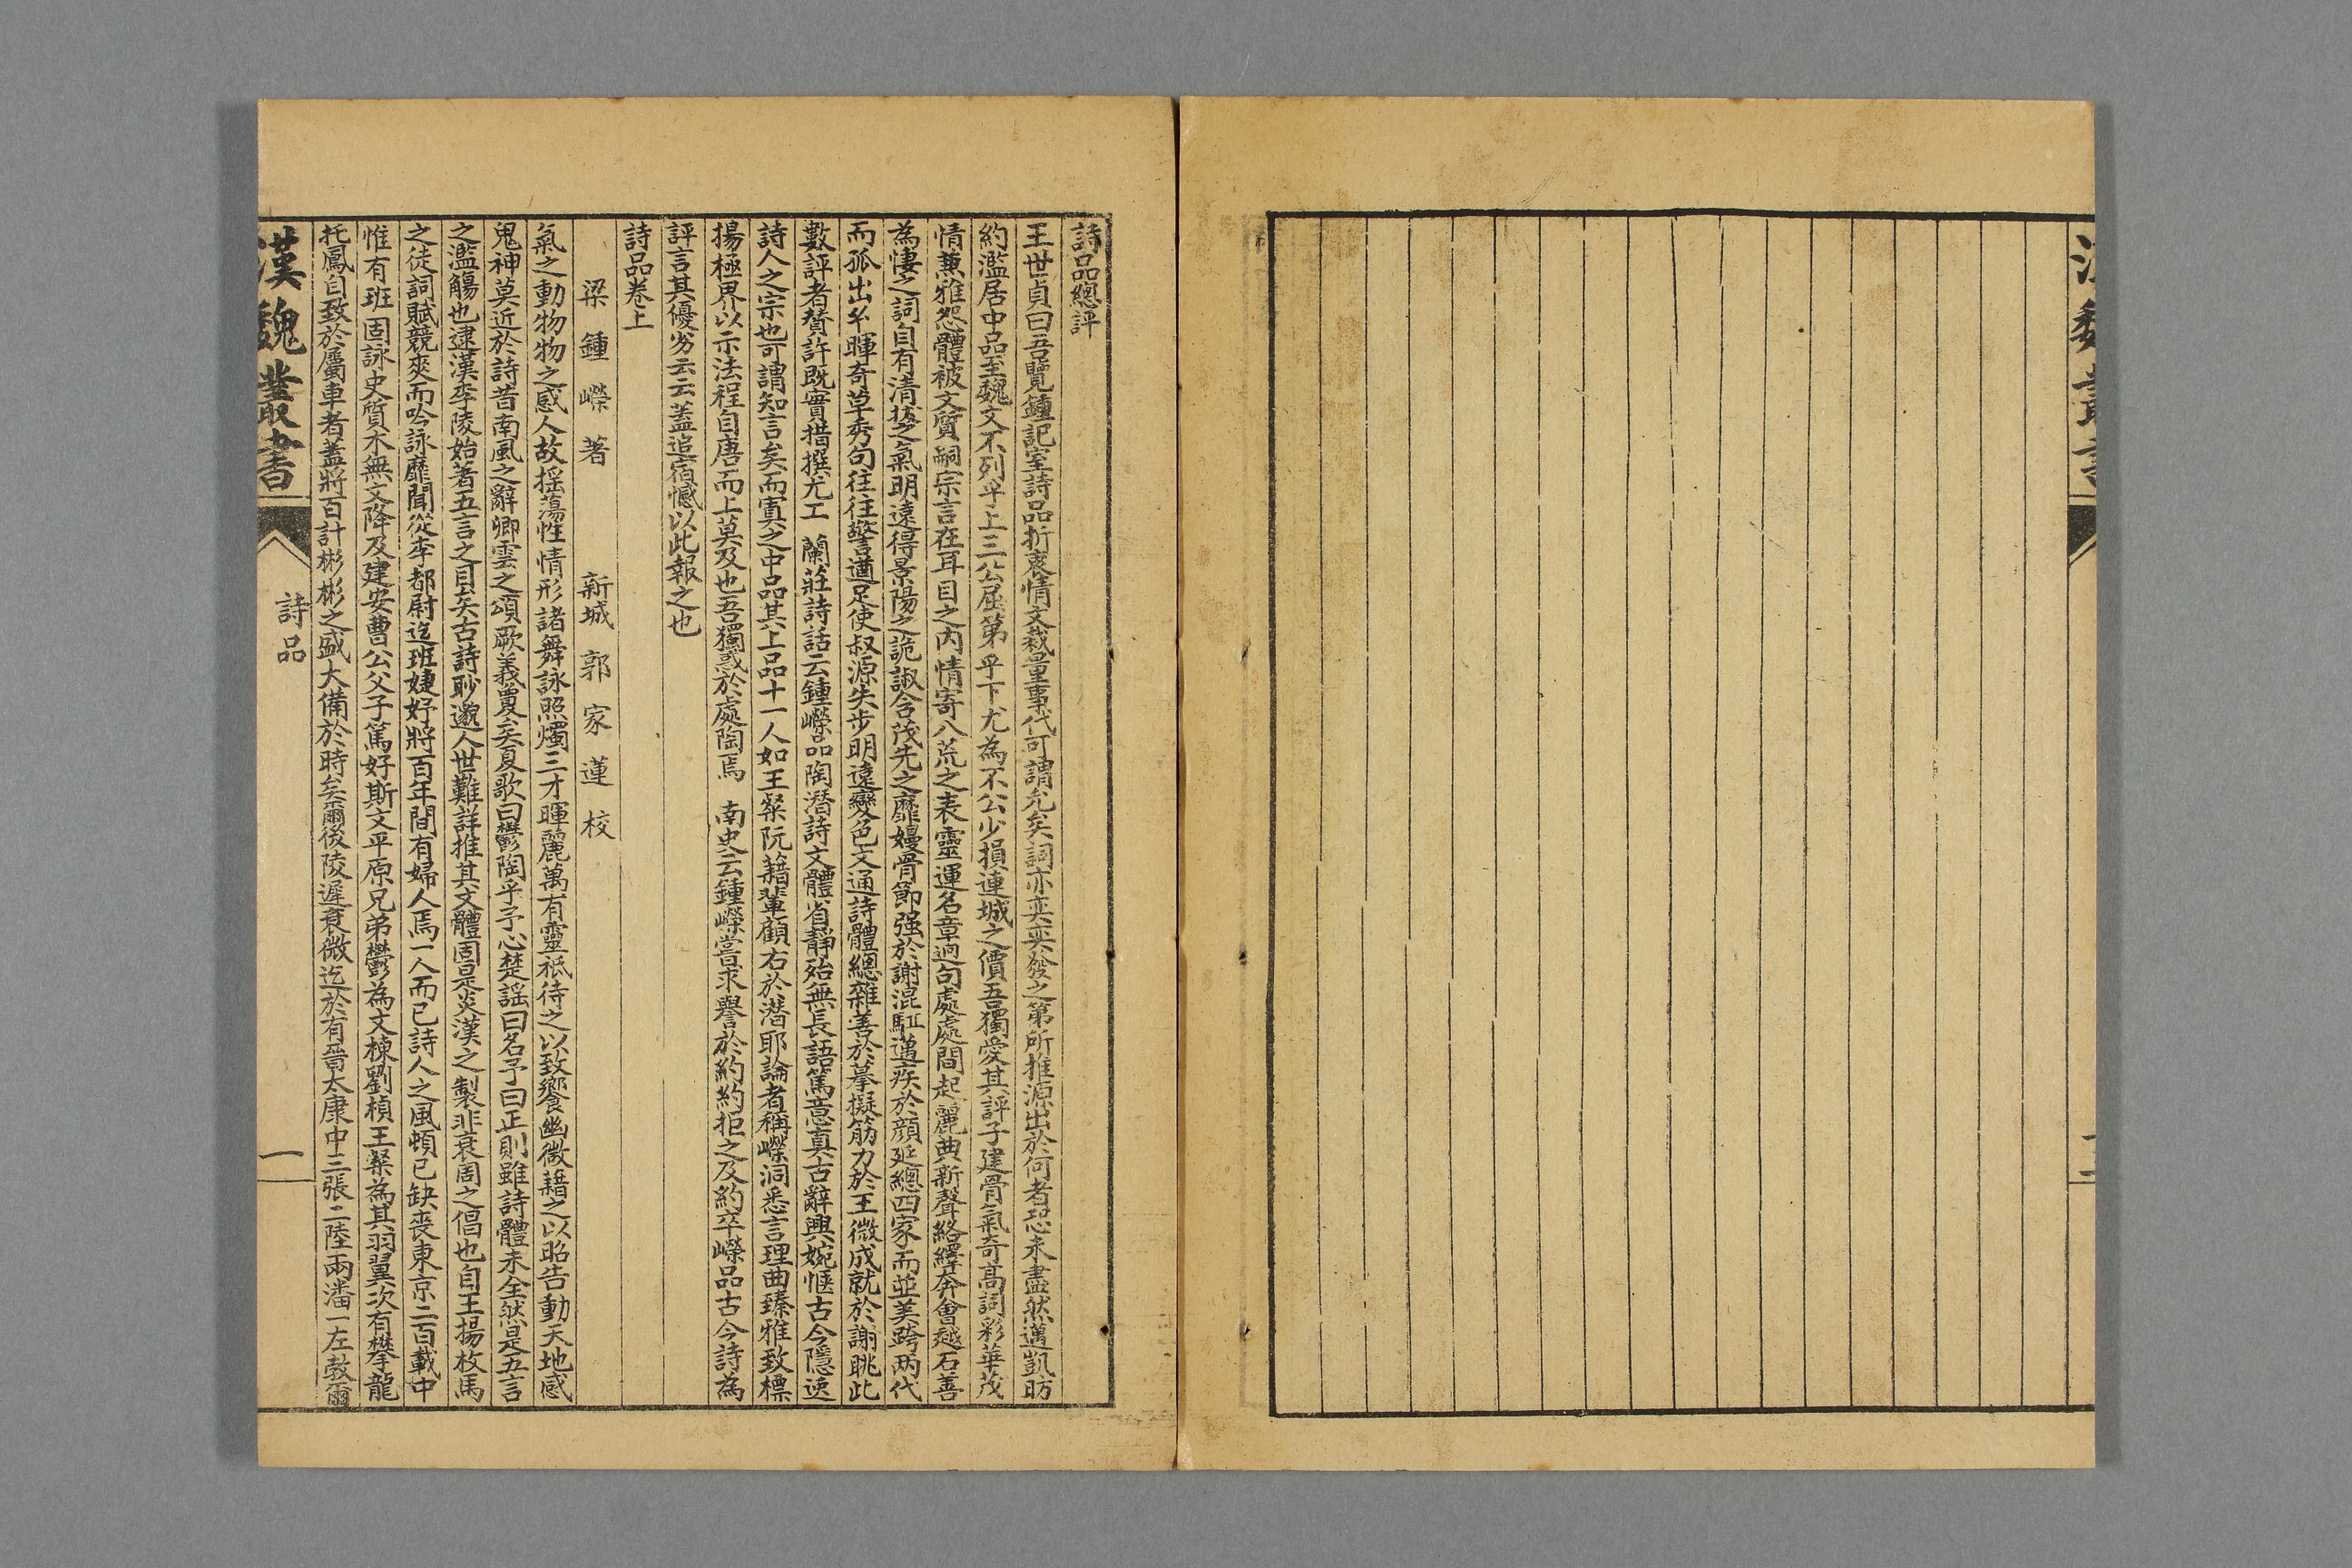 詩品總評
王世貞曰吾覽鍾記室詩品折衷情文裁量事代可謂允矣詞亦奕奕發之第所推源出於何者恐未盡然邁凱昉
約濫居中品至魏文不列乎上三公屈第乎下尤為不公少損連城之價吾獨愛其評子建骨氣奇高詞彩華茂
情兼雅怨體被文質嗣宗言在耳目之內情寄八荒之表靈運名章迥句處處間起麗典新聲絡繹奔會越石善
為悽之詞自有清拔之氣明遠得景陽之詭諔含茂先之靡嫚骨節强於謝混駈邁疾於顔延總四家而並美跨两代
而孤出兮暉奇草秀句往往警遒足使叔源失步明遠變色文通詩體總雜善於摹擬筋力於王微成就於謝眺此
數評者贊許既實措撰尤工 蘭莊詩話云鍾嶸品陶潜詩文體省靜殆無長語篤意真古辭興婉愜古今隱逸
詩人之宗也可謂知言矣而寘之中品其上品十一人如王粲阮藉輩顧右於潜耶論者稱嶸洞悉言理曲臻雅致標
揚極界以示法程自唐而上莫及也吾獨惑於處陶焉 南史云鍾嶸嘗求譽於約約拒之及約卒嶸品古今詩為
評言其優劣云云盖追宿憾以此報之也
詩品卷上
梁 鍾 嶸 著 新城 郭 家 蓮 校
氣之動物物之感人故揺蕩性情形諸舞詠照燭三才暉麗萬有靈祇待之以致饗幽微藉之以昭告動天地感
鬼神莫近於詩昔南風之辭卿雲之頌厥義夐矣夏歌曰鬱陶乎予心楚謡曰名予曰正則雖詩體未全然是五言
之濫觴也逮漢李陵始著五言之目矣古詩眇邈人世難詳推其文體固是炎漢之製非衰周之倡也自王揚枚馬
之徒詞賦競爽而吟詠靡聞從李都尉迄班婕妤將百年間有婦人焉一人而已詩人之風頓已缺喪東京二百載中
惟有班固詠史質木無文降及建安曹公父子篤好斯文平原兄弟鬱為文棟劉楨王粲為其羽翼次有攀龍
托鳳自致於屬車者蓋將百計彬彬之盛大備於時矣爾後陵遲衰微迄於有晉太康中三張二陸兩潘一左敦爾
漢魏叢書
詩品
一